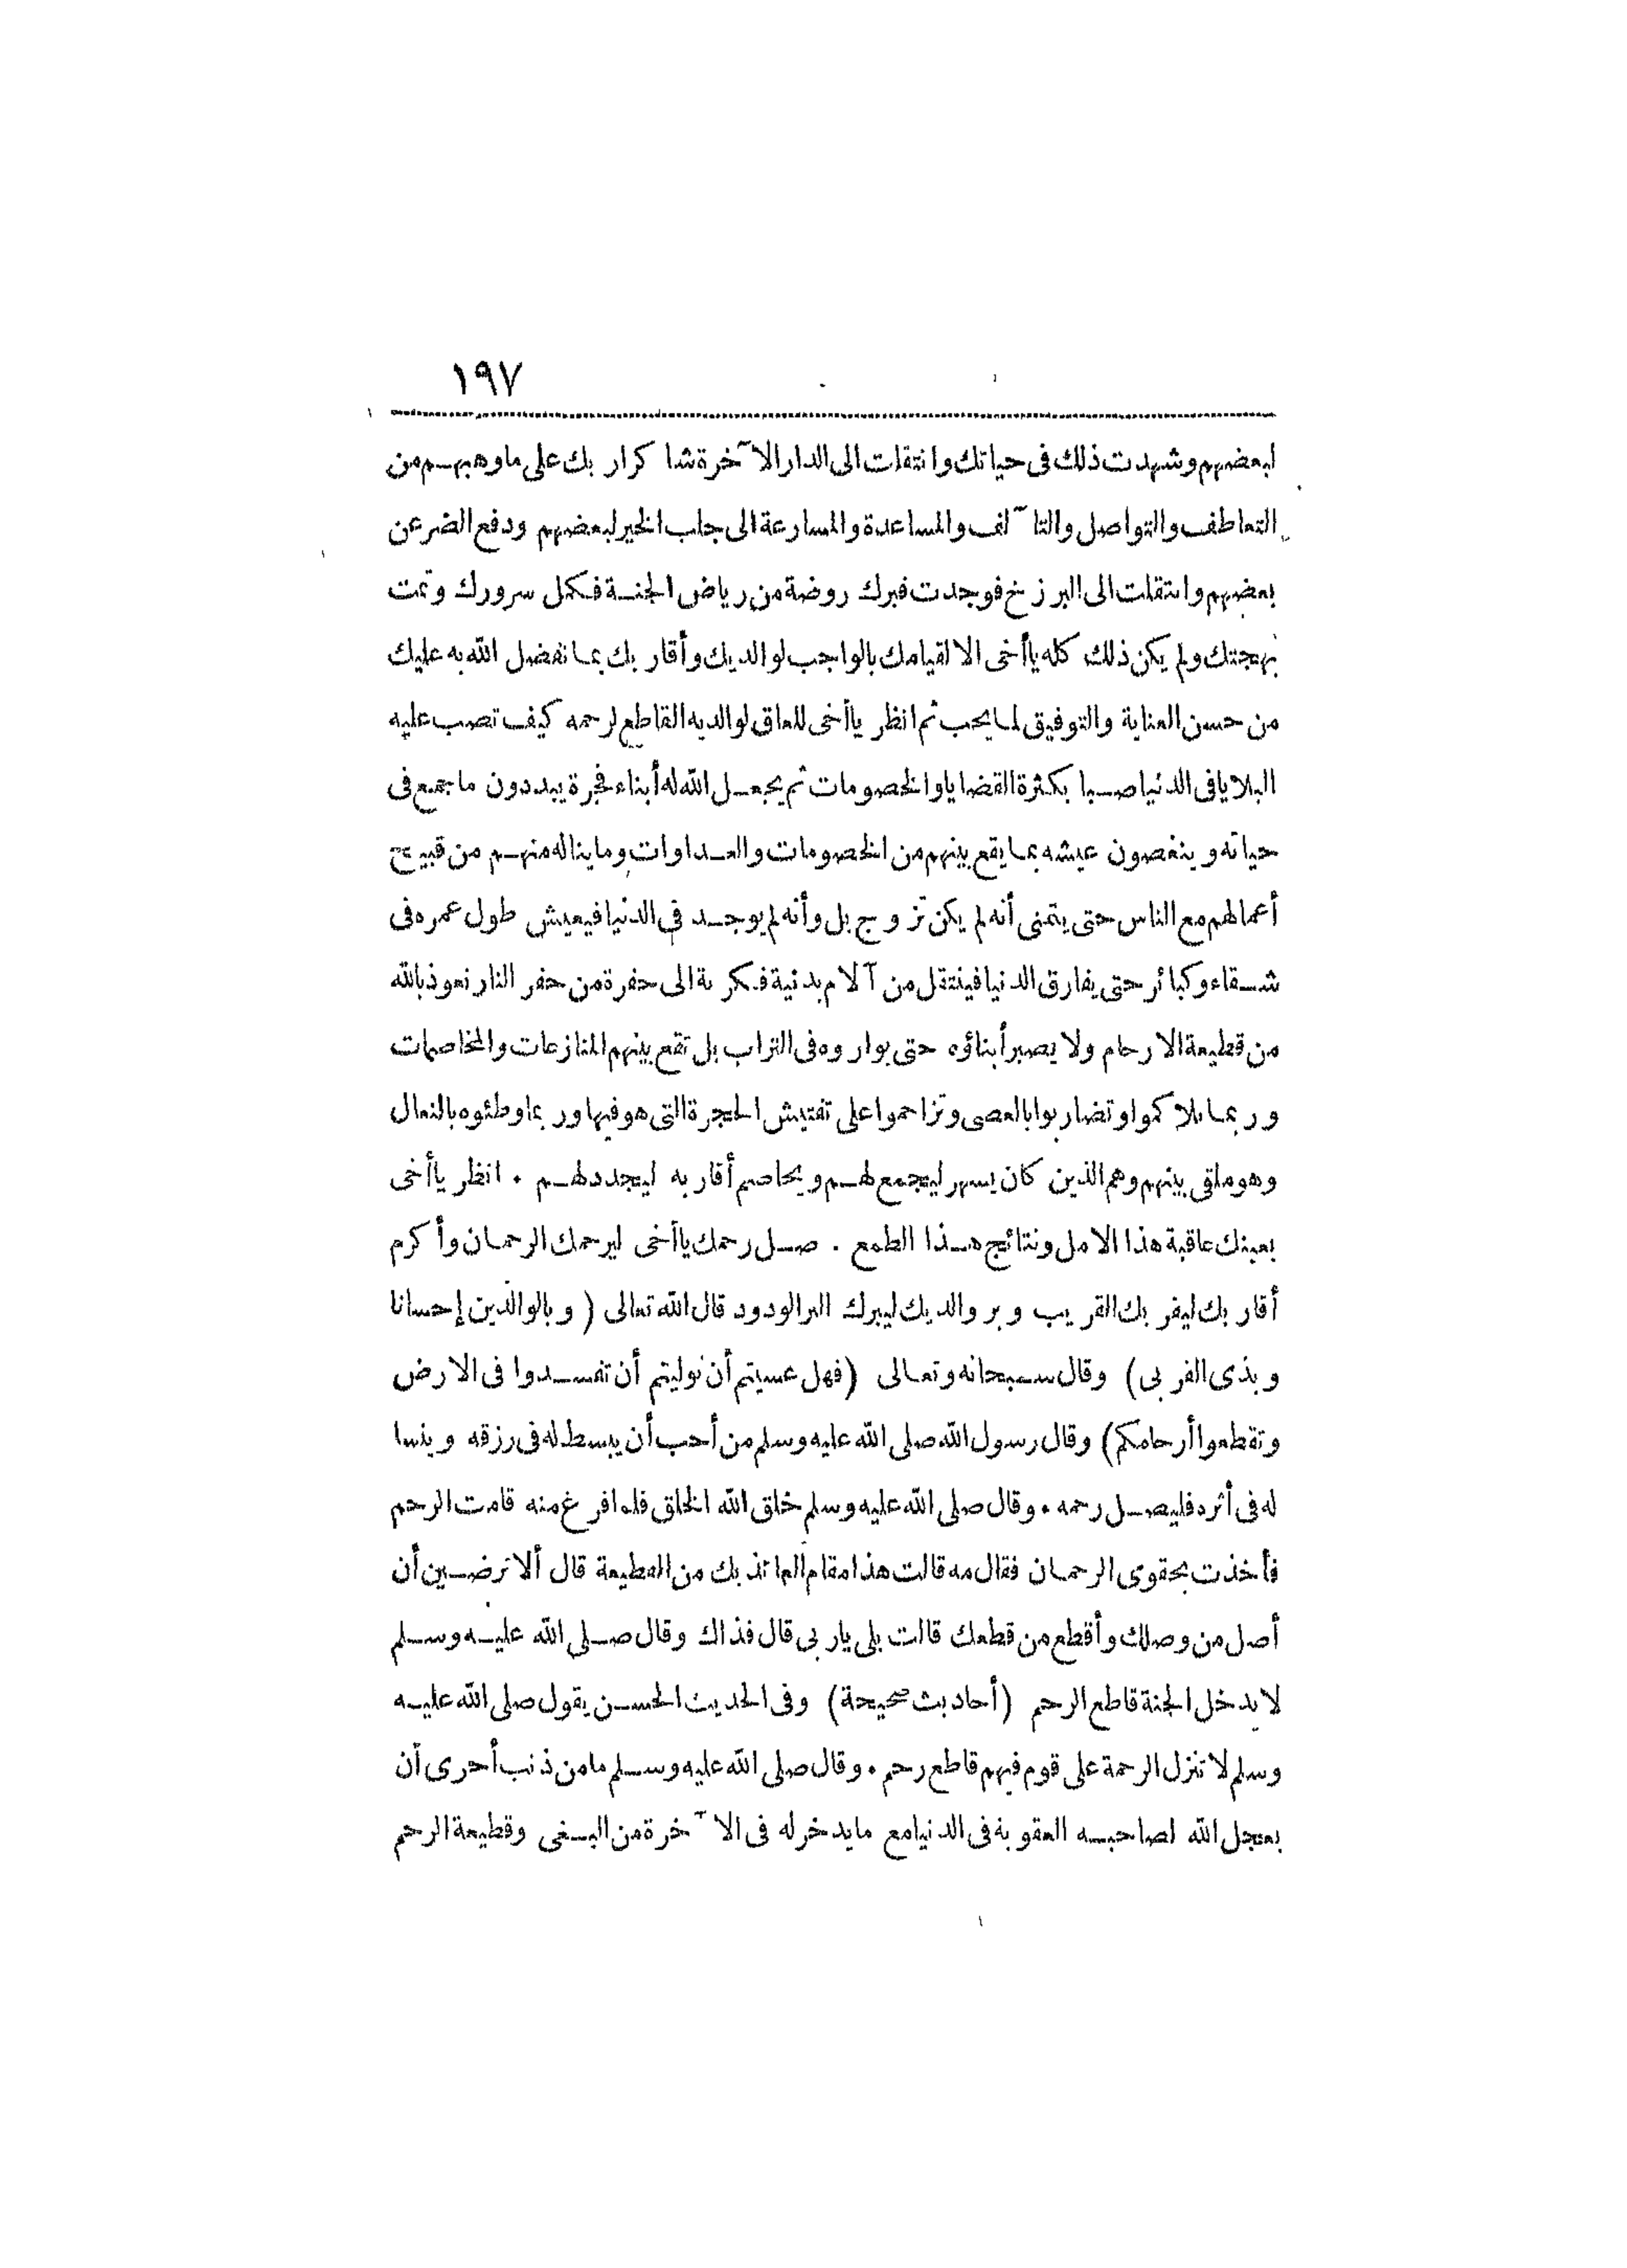 ١٩٧
لبعضهم وشهدت ذلك فى حياتك وانتقلت الى الدار الآخرة شاكرا ربك على ما وهبهم من
التعاطف والتواصل والتآلف والمساعدة والمسارعة الى جلب الخير لبعضهم ودفع الضر عن
بعضهم وانتقلت الى البرزخ فوجدت قبرك روضة من رياض الجنة فكمل سرورك وتمت
بهجتك ولم يكن ذلك كله يا أخى الا لقيامك بالواجب لوالديك وأقاربك بما تفضل الله به عليك
من حسن العناية والتوفيق لما يحب ثم انظر يا أخى للعاق لوالديه القاطع لرحمه كيف تصب عليه
البلايا فى الدنيا صبا بكثرة القضايا والخصومات ثم يجعل الله له أبناء فجرة يبددون ما جمع فى
حياته وينغصون عيشه بما يقع بينهم من الخصومات والعداوات وما يناله منهم من قبيح
أعمالهم مع الناس حتى يتمنى أنه لم يكن تزوج بل وأنه لم يوجد فى الدنيا فيعيش طول عمره فى
شقاء وكبائر حتى يفارق الدنيا فينتقل من آلام بدنية فكرية الى حفرة من حفر النار نعوذ بالله
من قطيعة الارحام ولا يصبر أبناؤه حتى يواروه فى التراب بل تقع بينهم المنازعات والمخاصمات
وربما تلاكموا وتضاربوا بالعصى وتزاحموا على تفتيش الحجرة التى هو فيها وربما وطئوه بالنعال
وهو ملقى بينهم وهم الذين كان يسهر ليجمع لهم ويخاصم أقاربه ليجدد لهم . انظر يا أخى
بعينك عاقبة هذا الامل ونتائج هذا الطمع . صل رحمك يا أخى ليرحمك الرحمان وأكرم
أقاربك ليقربك القريب وبر والديك ليبرك البر الودود قال الله تعالى ( وبالوالدين إحسانا
وبذى القربى ) وقال سبحانه وتعالى (فهل عسيتم أن توليتم أن تفسدوا فى الارض
وتقطعوا أرحامكم) وقال رسول الله صلى الله عليه وسلم من أحب أن يبسط له فى رزقه وينسا
له فى أثره فليصل رحمه . وقال صلى الله عليه وسلم خلق الله الخلق فلما فرغ منه قامت الرحم
فأخذت بحقوى الرحمان فقال مه قالت هذا مقام العائذ بك من القطيعة قال ألا ترضين أن
أصل من وصلك وأقطع من قطعك قالت بلى يا ربى قال فذاك وقال صلى الله عليه وسلم
لا يدخل الجنة قاطع الرحم (أحاديث صحيحة) وفى الحديث الحسن يقول صلى الله عليه
وسلم لا تنزل الرحمة على قوم فيهم قاطع رحم . وقال صلى الله عليه وسلم ما من ذنب أحرى أن
يعجل الله لصاحبه العقوبة فى الدنيا مع ما يدخر له فى الآخرة من البغى وقطيعة الرحم